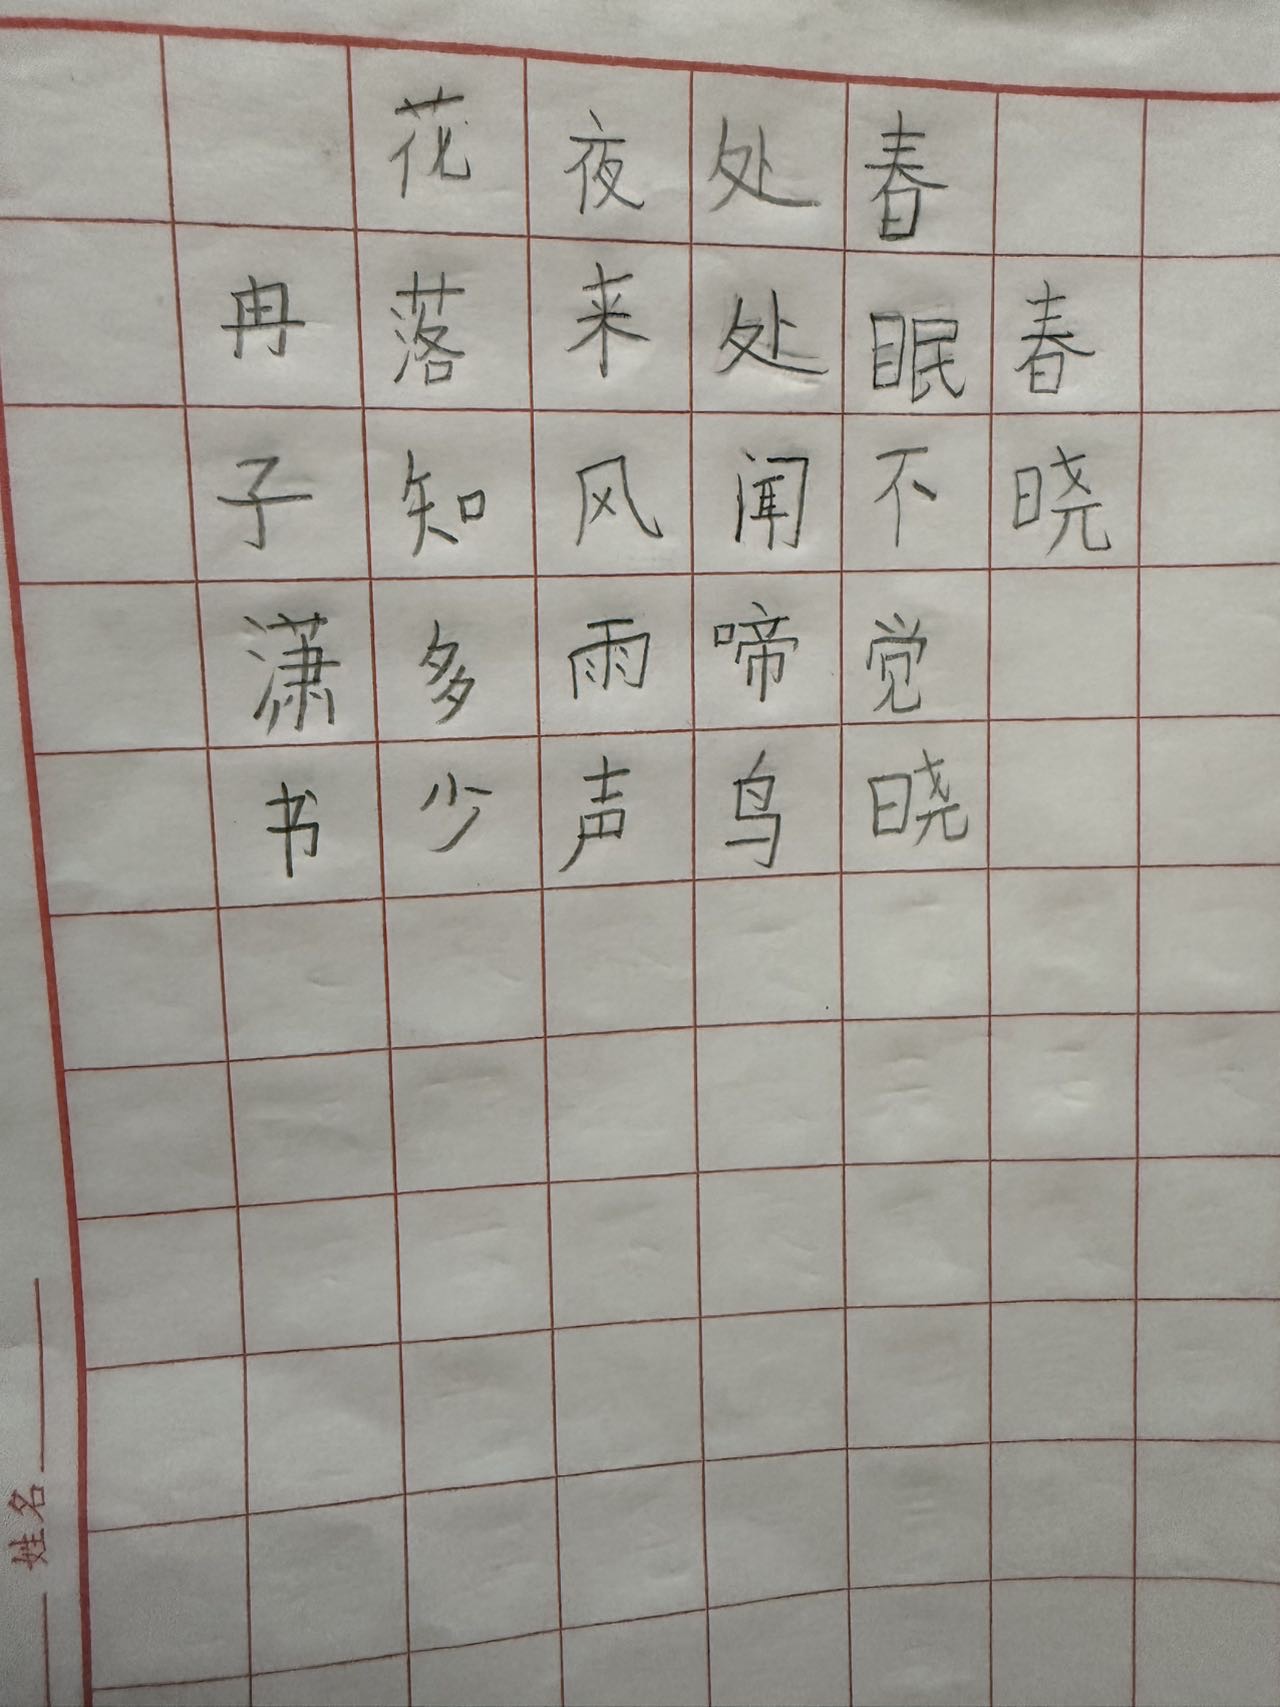 春晓
春眠不觉晓
处处闻啼鸟
夜来风雨声
花落知多少
冉子潇书
姓名